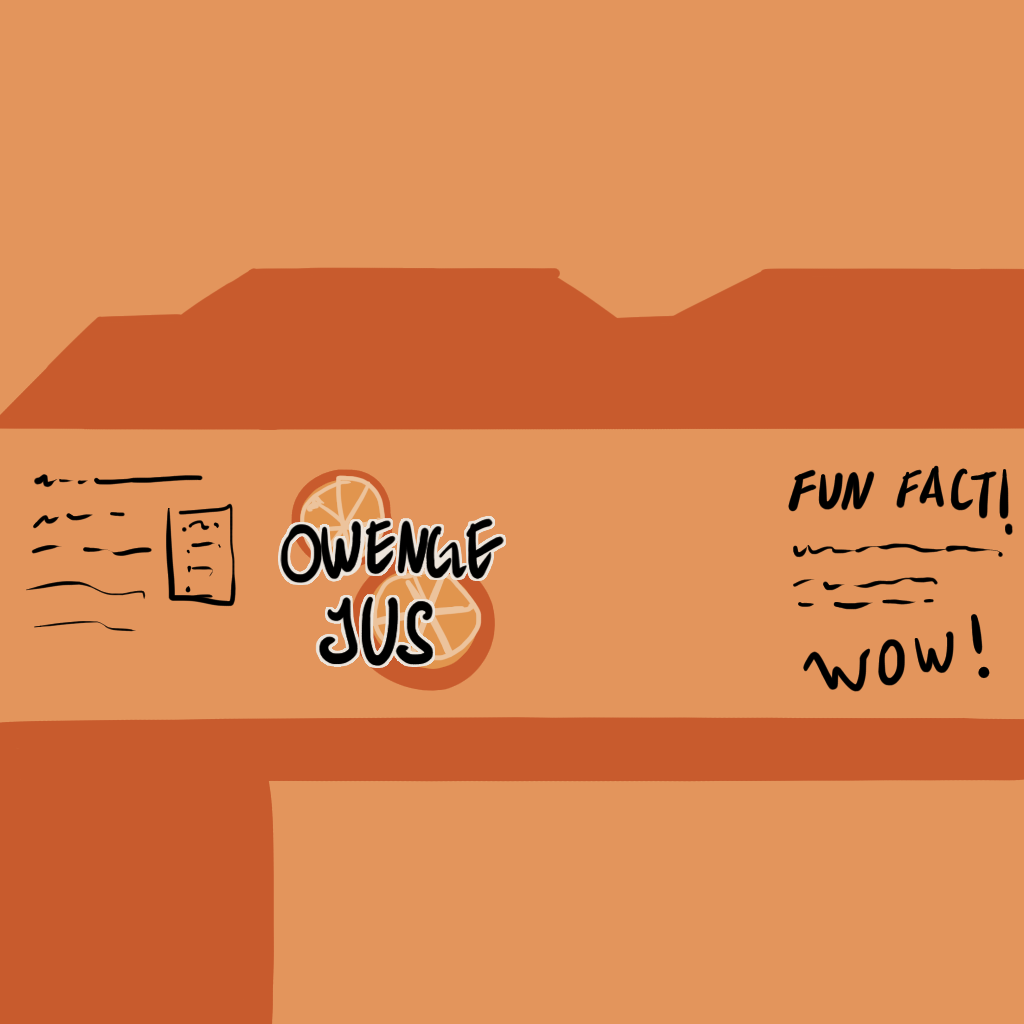 OWENGE
JUS
FUN FACT!
WOW!